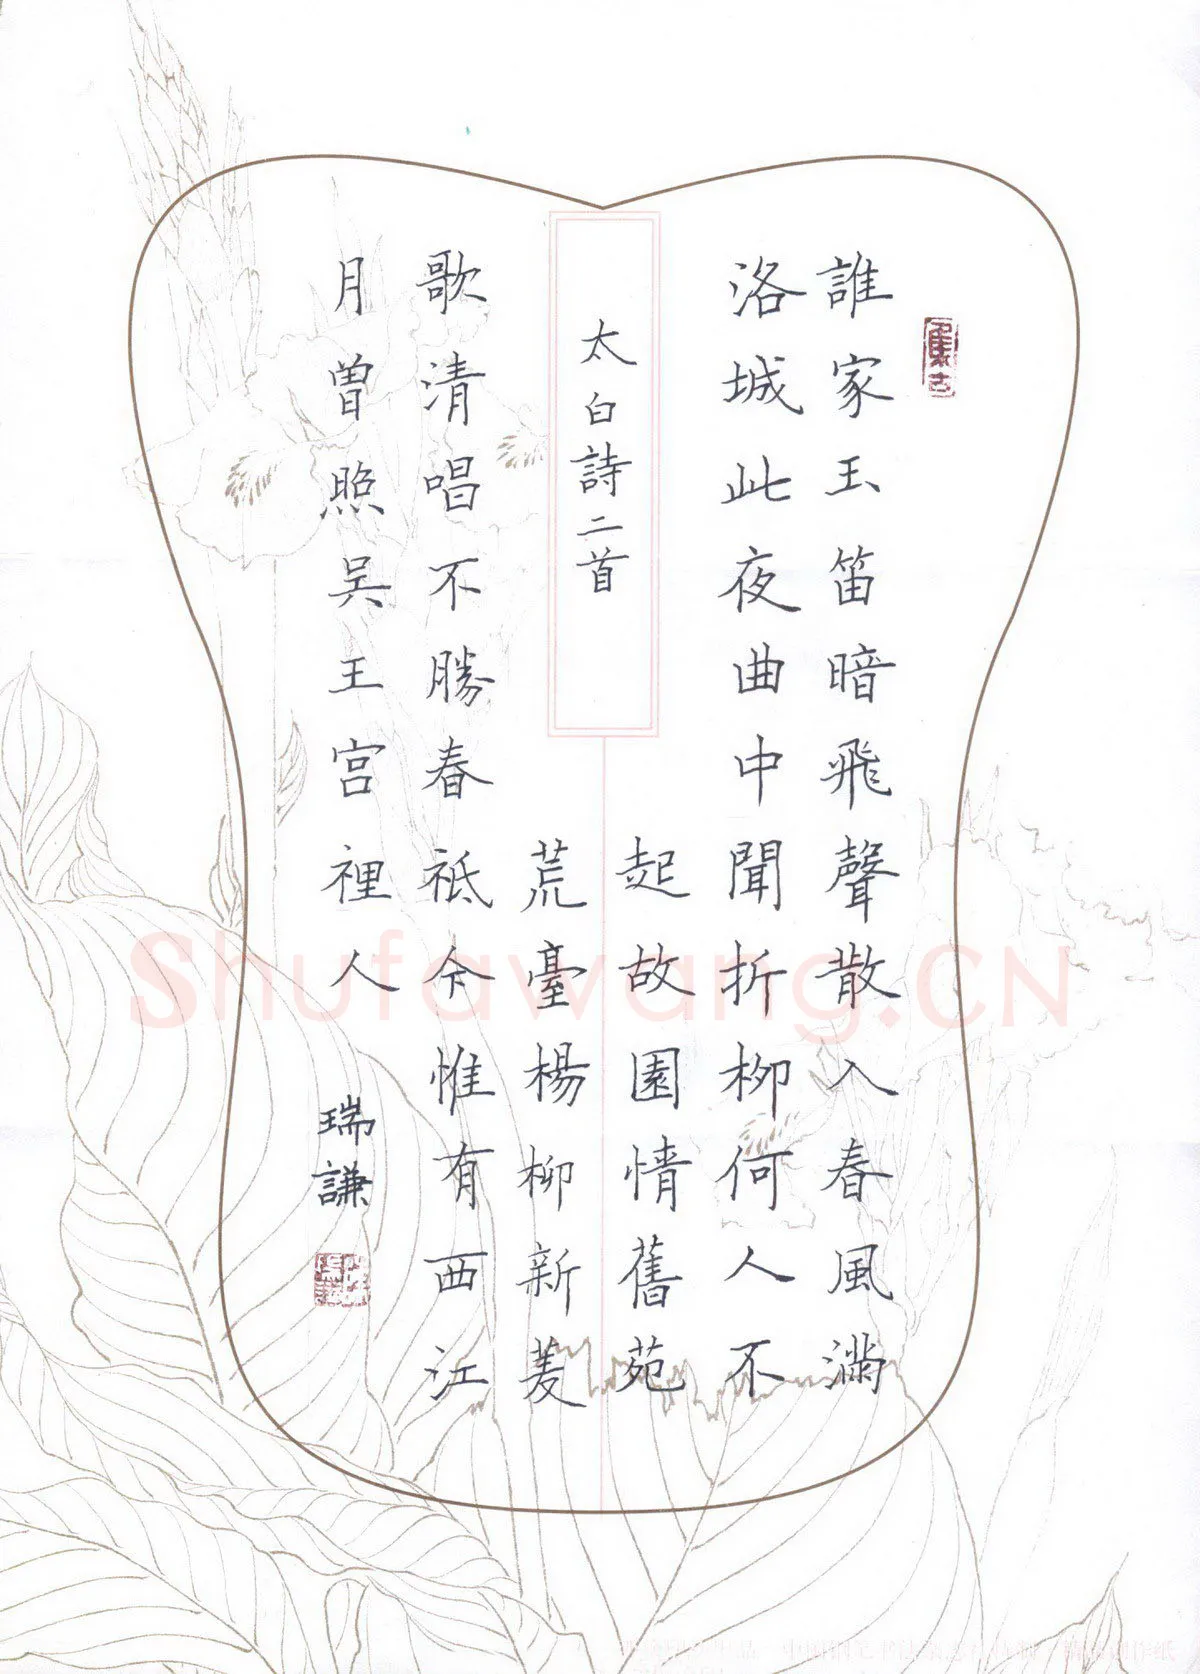 誰家玉笛暗飛聲散入春風滿
洛城此夜曲中聞折柳何人不
起故園情舊苑
太白詩二首
荒臺楊柳新菱
歌清唱不勝春祗今惟有西江
月曾照吳王宮裡人
瑞謙
Shufawang.CN